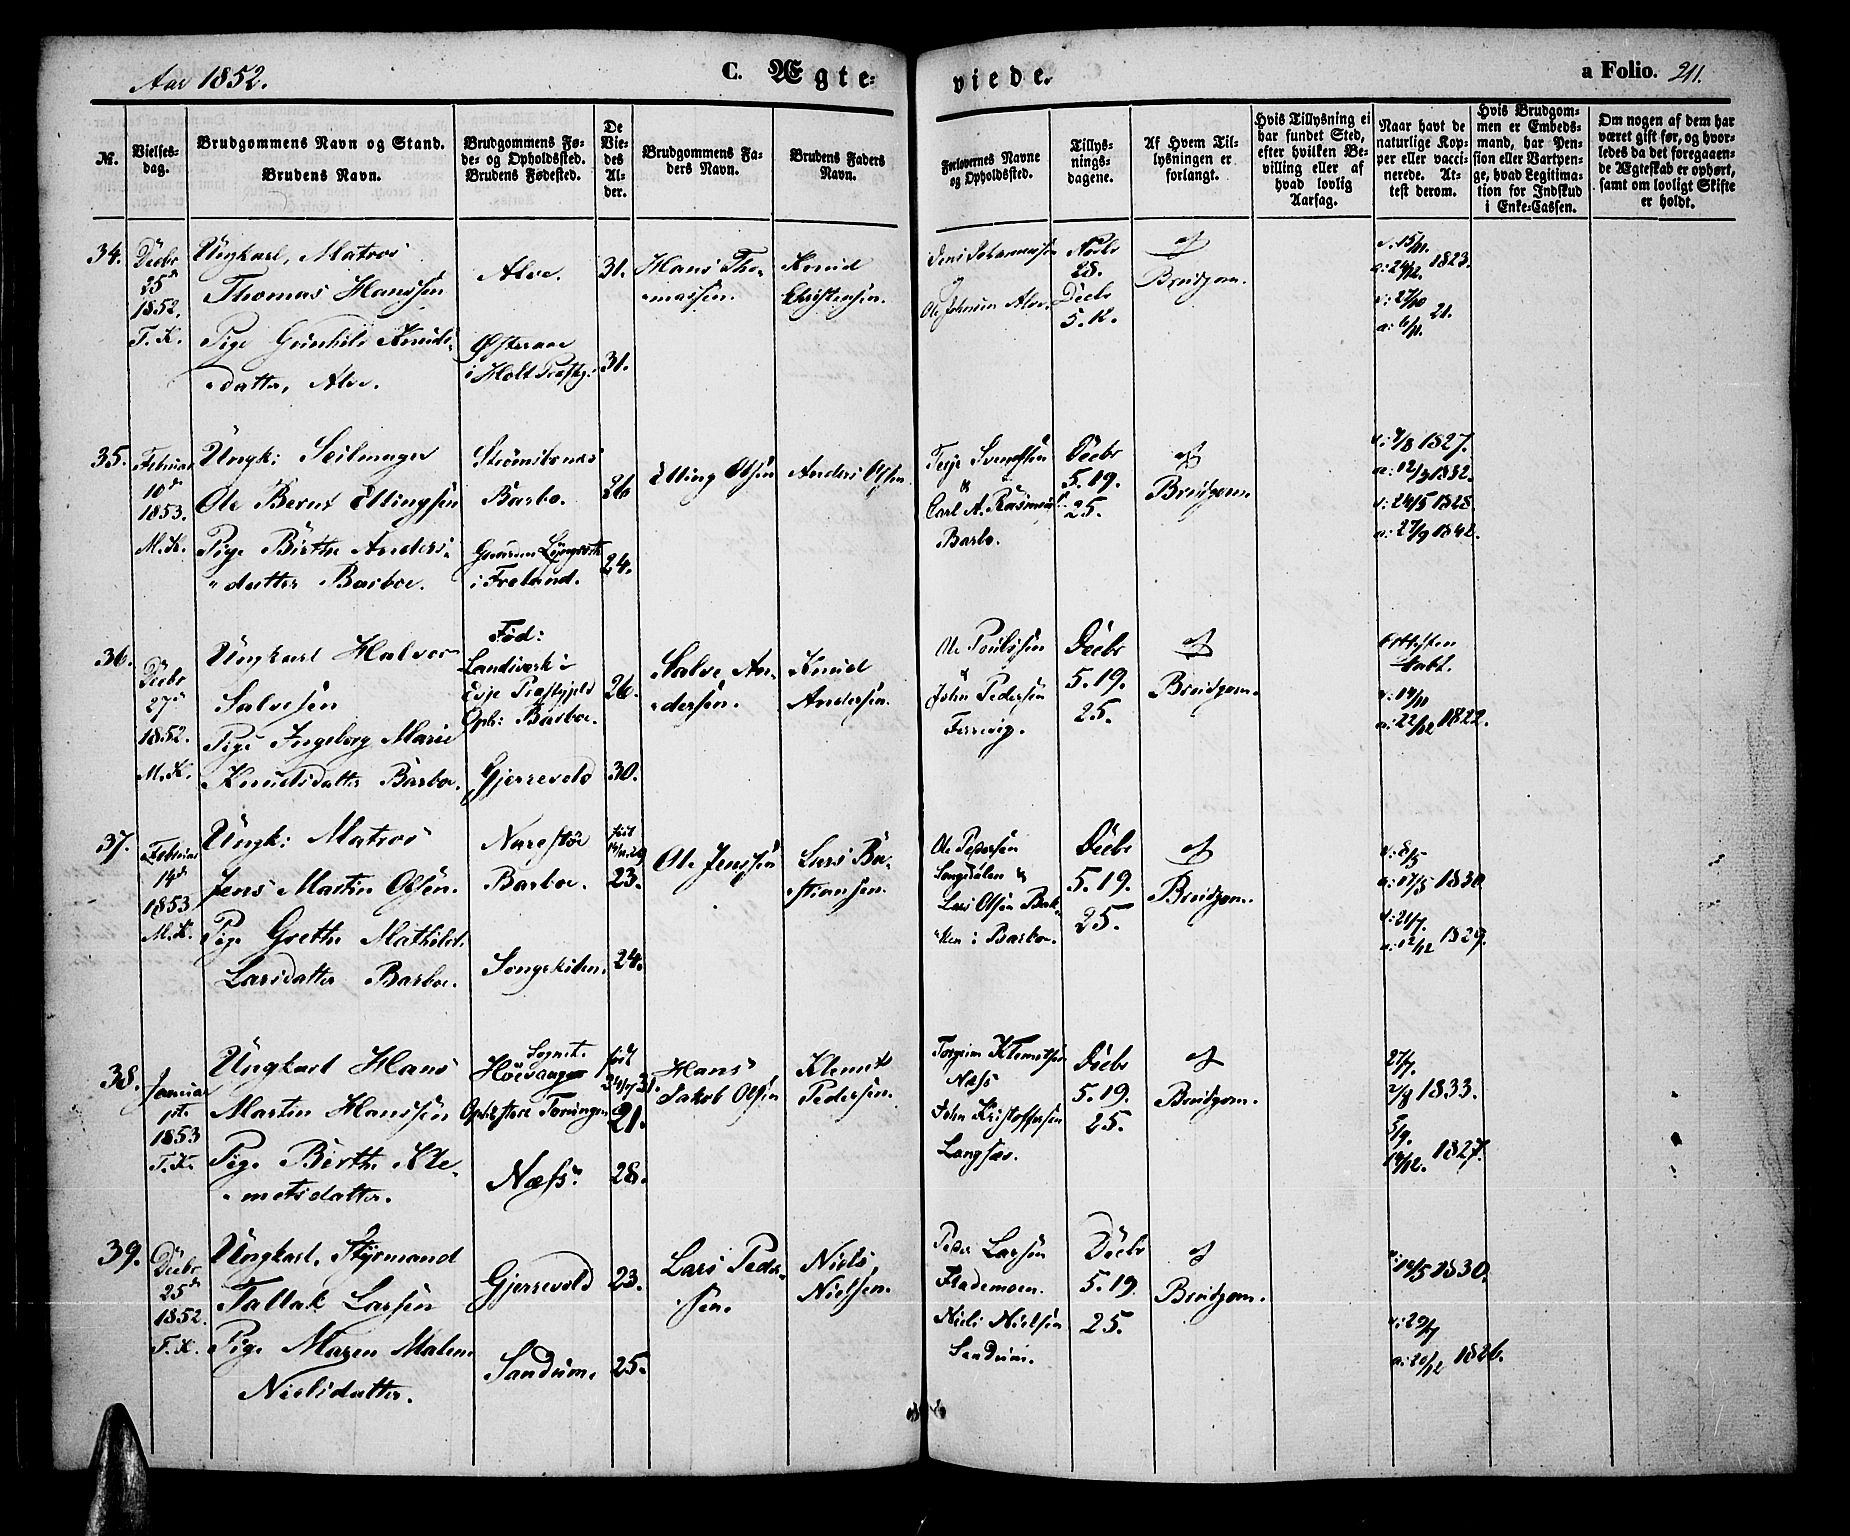 Aar 1852.
C. Ægte-
viede.
a Folio. 211.
№.
Vielses-
dag.
Brudgommens Navn og Stand.
Brudens Navn.
Brudgommens Fø-
de- og Opholdssted.
Brudens Fødested.
De
Vie-
des
Al-
der.
Brudgommens Fa-
ders Navn.
Brudens Faders
Navn.
Forlovernes Navne
og Opholdssted.
Tillys-
nings-
dagene.
Af Hvem Til-
lysningen er
forlangt.
Hvis Tillysning ei
har fundet Sted,
efter hvilken Be-
villing eller af
hvad lovlig
Aarsag.
Naar havt de
naturlige Kop-
per eller vacci-
nerede. At-
test derom.
Hvis Brudgom-
men er Embeds-
mand, har Pen-
sion eller Vartpen-
ge, hvad Legitima-
tion for Indskud
i Enke-Cassen.
Om nogen af dem har
været gift før, og hvor-
ledes da det foregaaen-
de Ægteskab er ophørt,
samt om lovligt Skifte
er holdt.
34.
Decbr
25de
1852.
T. K.
Ungkarl, Matros
Thomas Hanssen
Pige Gunhild Knuds-
datter, Alve.
Alve.
Østeraae
i Holt Præstgj.
31.
31.
Hans Tho-
massen.
Knud
Christensen.
Jens Johannessen
Ole Johnsen Alve.
Novbr
28.
Decbr
5. 12.
af
Brudgom.
v. 15/11.
a: 24/12. 1823.
v: 27/10
a: 6/11. 21.
35.
Februar
10de
1853.
M. K.
Ungk: Seilmager
Ole Bernt Ellingsen
Pige Birthe Anders-
datter Barboe.
Strømsbonæs
Barbo.
Gaarden
i Froland.
26
24.
Elling Olsen
Anders Olsen.
Terje Svendsen
&
Carl A. Rasmussen
Barbo.
Decbr
5. 19.
25.
af
Brudgom.
v: 4/8 1827.
a: 12/3 1832.
v: 24/5 1828.
a: 27/9 1848.
36.
Decbr
27de
1852.
M. K.
Ungkarl Halvor
Salvesen
Pige Ingeborg Marie
Knudsdatter Barboe.
Fød:
Landsverk i
Evje Præstgjeld
Oph: Barboe.
Gjerrevold
26.
30.
Salve An-
dersen.
Knud
Andersen.
Ole Poulssen
&
John Pedersen
Ferrevig.
Decbr
5. 19.
25.
af
Brudgom.
Attesten
tabt.
v: 14/11
a: 22/12 1822.
37.
Februar
14de
1853
M. K.
Ungk: Matros
Jens Martin Olsen.
Pige Grethe Mathilde
Larsdatter Barboe.
Narestøe
Barboe.
Songekilen.
født
23.
24.
Ole Jenssen
Lars Ba-
stiansen.
Ole Pedersen
Songekilen &
Lars Olsen Bak-
ken i Barboe.
Decbr
5. 19.
25.
af
Brudgom.
v: 8/5
a: 17/5 1830
v: 21/7.
a: 12/12 1829.
38.
Januar
1ste
1853
T. K.
Ungkarl Hans
Martin Hanssen
Pige Birthe Kle-
metsdatter.
Sognet.
Høevaag
Oph: store Torungen
Næss.
født
24/7 31.
21.
28.
Hans
Jakob Olsen
Klemet
Pedersen.
Torgrim Klemetsen
Næss
John Kristoffersen
Langsæe.
Decbr
5. 19.
25.
af
Brudgom.
27/7.
2/8 1833.
5/9.
14/12. 1827.
39.
Decbr
25de
1852.
T. K.
Ungkarl, Styrmand
Tallak Larsen
Pige Maren Malene
Nielsdatter.
Gjerrevold
Sandum.
23.
25.
Lars Peder-
sen.
Niels
Nielsen.
Peder Larsen
Flademoen.
Niels Nielsen
Sandum.
Decbr
5. 19.
25.
af
Brudgom.
v: 14/5 1830.
v: 29/7
a: 20/12 1826.